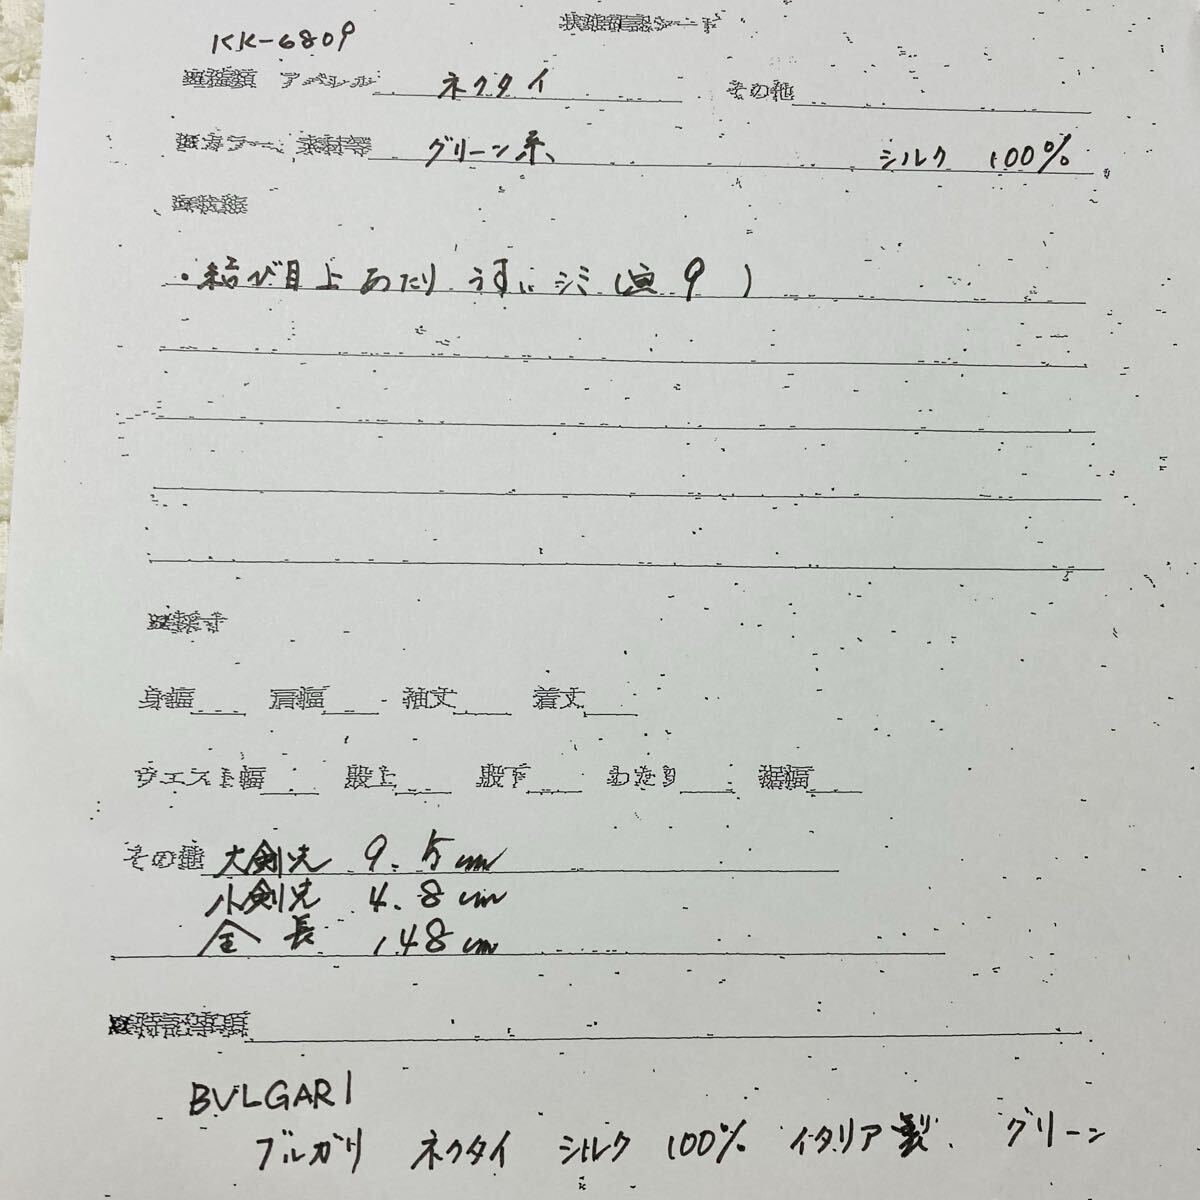 状態確認シート
KK-6809
種類 アパレル ネクタイ その他
カラー、素材等 グリーン系、 シルク 100%
状態
・結び目上あたり うすいシミ(画9 )
採寸
身幅 肩幅 袖丈 着丈
ウエスト幅 股上 股下 わたり 裾幅
その他 大剣先 9.5cm
小剣先 4.8cm
全長 148cm
特記事項
BVLGARI
ブルガリ ネクタイ シルク 100% イタリア製 グリーン